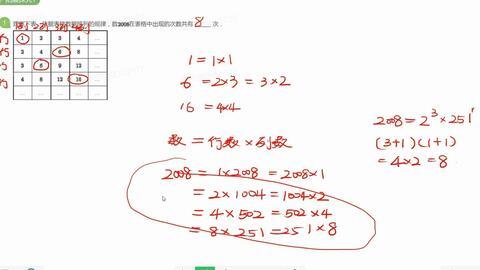 1 观察下表,依据表格数据排列的规律,数2008在表格中出现的次数共有 8 次.
1列 2列 3列 4列
1 2 3 4 …
2 4 6 8 …
3 6 9 12 …
4 8 12 16 …
… … … … …
1 = 1×1
6 = 2×3 = 3×2
16 = 4×4
数 = 行数 × 列数
2008 = 1×2008 = 2008×1
= 2×1004 = 1004×2
= 4×502 = 502×4
= 8×251 = 251×8
2008 = 2³×251¹
(3+1)(1+1)
= 4×2 = 8